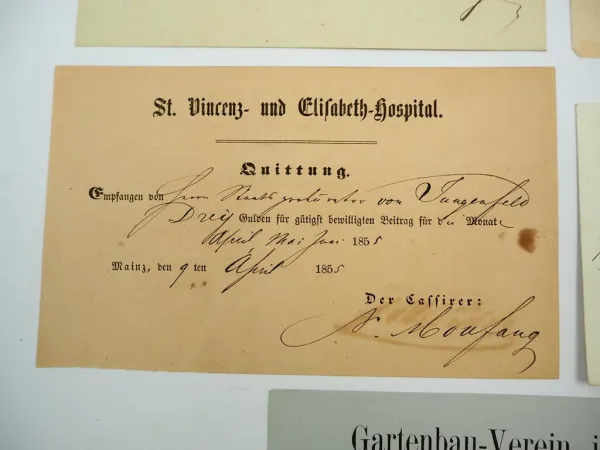 St. Vincenz- und Elisabeth-Hospital.
Quittung.
Empfangen von Herrn Staatsprokurator von Jungenfeld
Drey Gulden für gütigst bewilligten Beitrag für die Monate
April, Mai Juni 1855
Mainz, den 9 ten April 1855
Der Cassirer:
N. Moufang
Gartenbau-Verein i